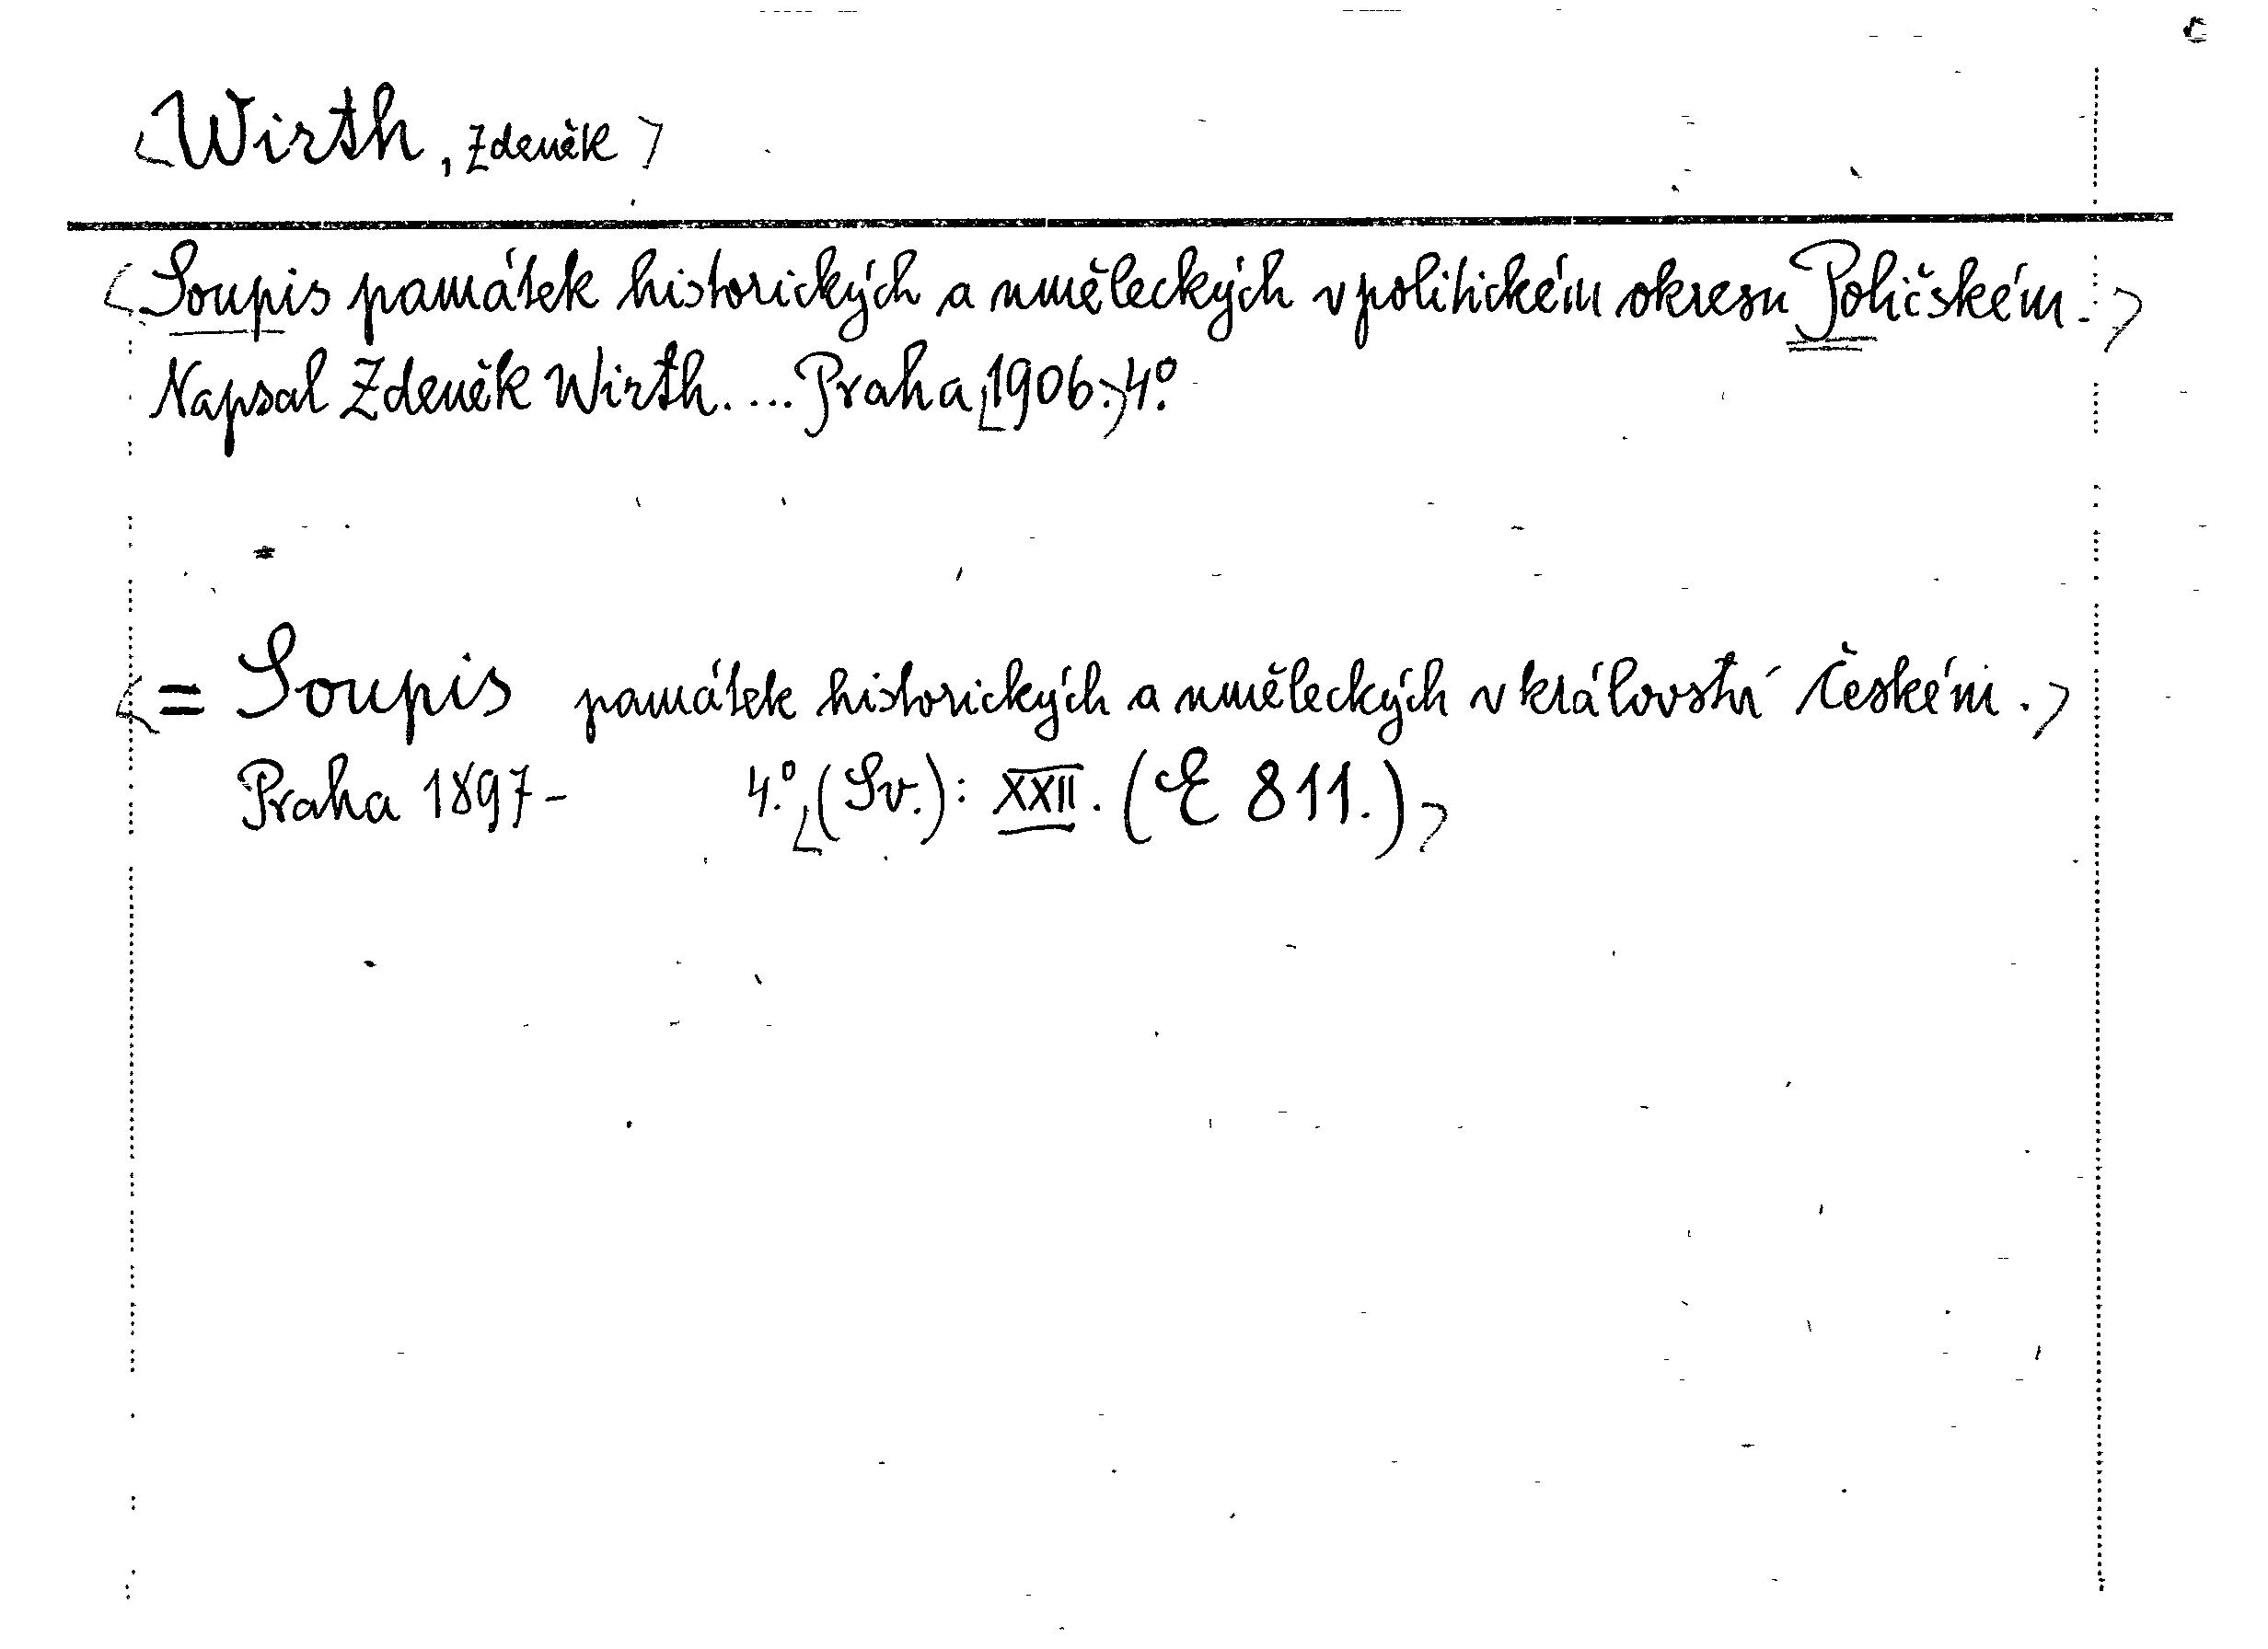 <Wirth, Zdeněk>
<Soupis památek historických a uměleckých v politickém okresu Poličském.>
Napsal Zdeněk Wirth.... Praha <1906.> 4º.
<= Soupis památek historických a uměleckých v království Českém.>
Praha 1897- 4.º <(Sv.): XXII. (E 811.)>